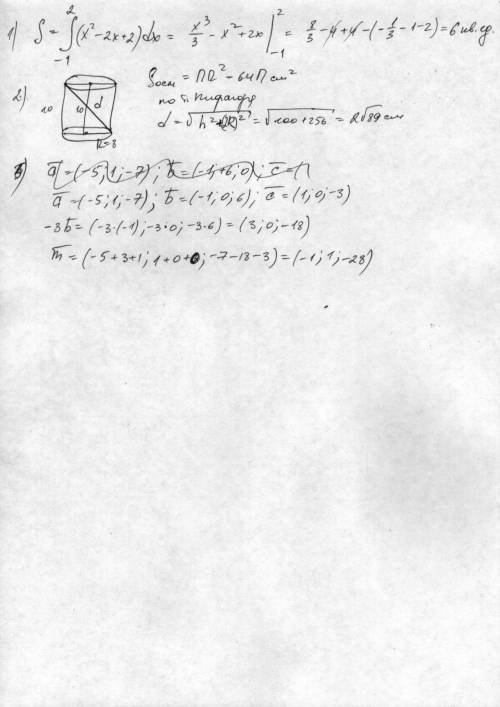 1) S = ∫₋₁² (x² - 2x + 2) dx = x³/3 - x² + 2x |₋₁² = 8/3 - 4 + 4 - (-1/3 - 1 - 2) = 6 кв. ед.
2) Sосн = ПR² - 64П см²
10 10 d R=8
по т. Пифагора
d = √(h² + (2R)²) = √(100 + 256) = 2√89 см
3) a = (-5; 1; -7); b = (-1; +6; 0); c = (1
a = (-5; 1; -7); b = (-1; 0; 6); c = (1; 0; -3)
-3b = (-3·(-1); -3·0; -3·6) = (3; 0; -18)
m = (-5+3+1; 1+0+0; -7-18-3) = (-1; 1; -28)